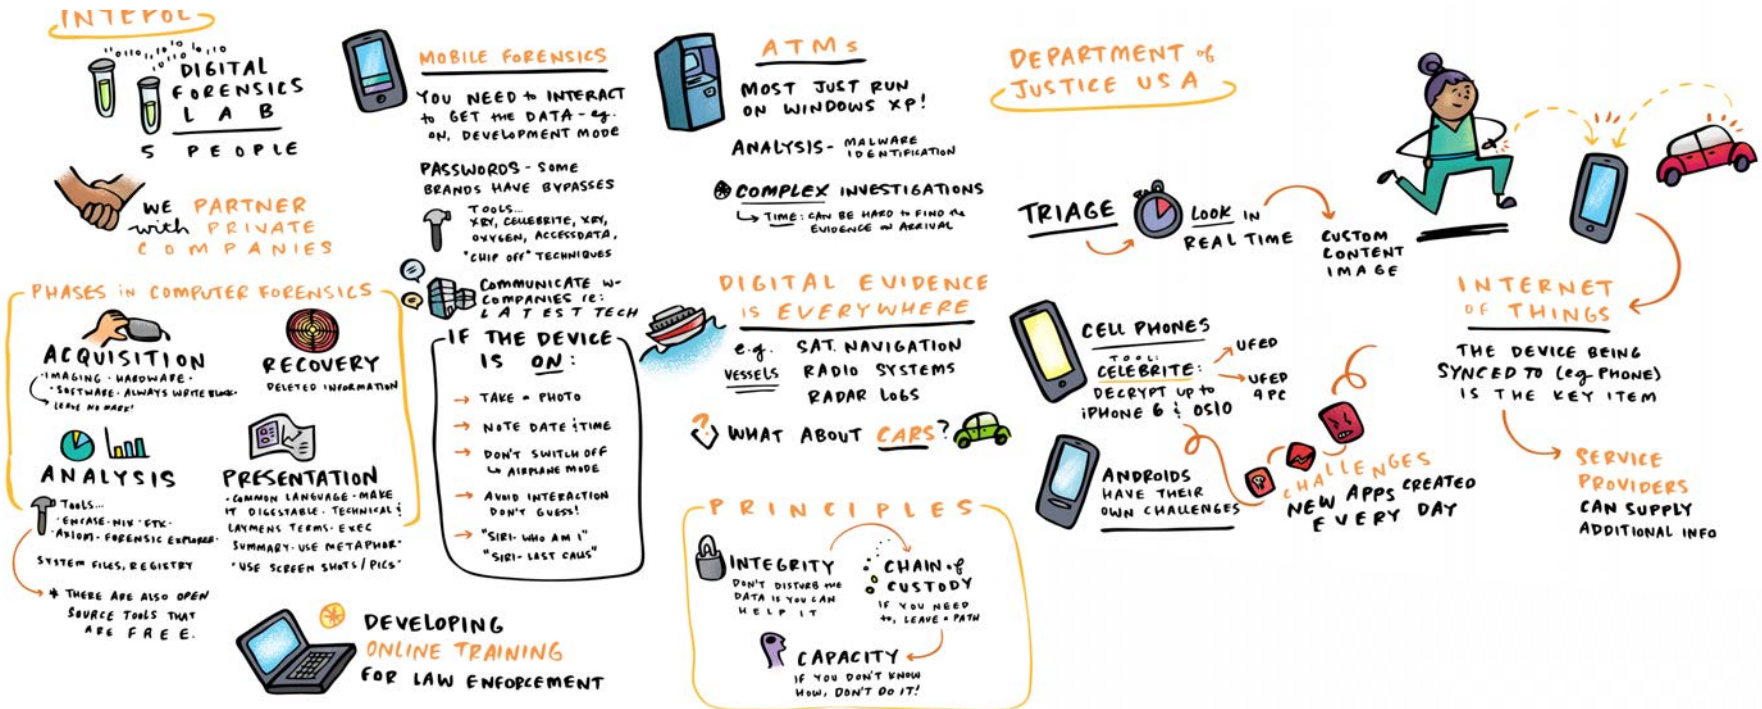 INTEPOL
"0110110 10 0110
10110 10
DIGITAL
FORENSICS
LAB
5 PEOPLE
WE PARTNER
with PRIVATE
COMPANIES
PHASES in COMPUTER FORENSICS
ACQUISITION
·IMAGING·HARDWARE·
·SOFTWARE·ALWAYS WRITE BLOCK·
LEAVE NO MARK!
RECOVERY
DELETED INFORMATION
ANALYSIS
TOOLS...
·ENCASE·NIX·FTK·
·AXIOM·FORENSIC EXPLORER·
SYSTEM FILES, REGISTRY
* THERE ARE ALSO OPEN
SOURCE TOOLS THAT
ARE FREE.
PRESENTATION
·COMMON LANGUAGE·MAKE
IT DIGESTABLE·TECHNICAL &
LAYMENS TERMS·EXEC
SUMMARY·USE METAPHOR·
·USE SCREEN SHOTS/PICS·
DEVELOPING
ONLINE TRAINING
FOR LAW ENFORCEMENT
MOBILE FORENSICS
YOU NEED to INTERACT
to GET THE DATA - eg.
ON, DEVELOPMENT MODE
PASSWORDS - SOME
BRANDS HAVE BYPASSES
TOOLS...
XRY, CELLEBRITE, XRY,
OXYGEN, ACCESSDATA,
"CHIP OFF" TECHNIQUES
COMMUNICATE W-
COMPANIES re:
LATEST TECH
IF THE DEVICE
IS ON:
→ TAKE a PHOTO
→ NOTE DATE & TIME
→ DON'T SWITCH OFF
↳ AIRPLANE MODE
→ AVOID INTERACTION
DON'T GUESS!
→ "SIRI- WHO AM I"
"SIRI- LAST CALLS"
ATMs
MOST JUST RUN
ON WINDOWS XP!
ANALYSIS- MALWARE
IDENTIFICATION
COMPLEX INVESTIGATIONS
↳ TIME: CAN BE HARD to FIND the
EVIDENCE on ARRIVAL
DIGITAL EVIDENCE
IS EVERYWHERE
e.g. SAT. NAVIGATION
VESSELS RADIO SYSTEMS
RADAR LOGS
? WHAT ABOUT CARS?
PRINCIPLES
INTEGRITY
DON'T DISTURB the
DATA IF YOU CAN
HELP IT
CHAIN of
CUSTODY
IF YOU NEED
to, LEAVE a PATH
CAPACITY
IF YOU DON'T KNOW
HOW, DON'T DO IT!
DEPARTMENT of
JUSTICE USA
TRIAGE
LOOK IN
REAL TIME
CUSTOM
CONTENT
IMAGE
CELL PHONES
TOOL:
CELEBRITE:
DECRYPT UP to
iPHONE 6 & OS10
UFED
UFED
4PC
ANDROIDS
HAVE THEIR
OWN CHALLENGES
CHALLENGES
NEW APPS CREATED
EVERY DAY
INTERNET
OF THINGS
THE DEVICE BEING
SYNCED TO (eg PHONE)
IS THE KEY ITEM
SERVICE
PROVIDERS
CAN SUPPLY
ADDITIONAL INFO